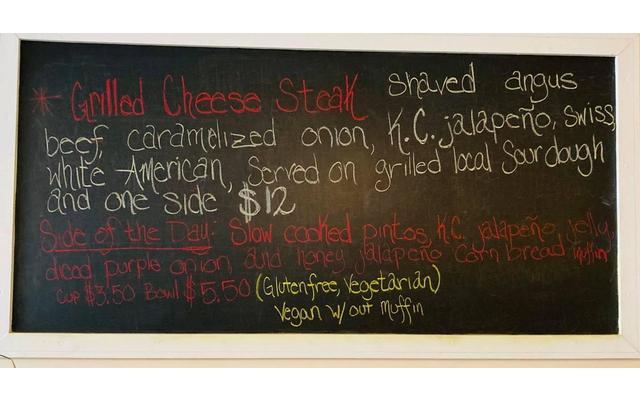 * Grilled Cheese Steak shaved angus
beef, caramelized onion, K.C. jalapeño, swiss,
white American, Served on grilled local Sourdough
and one side $12
Side of the Day: Slow cooked pintos, K.C. jalapeño, jelly,
diced purple onion, and honey jalapeño corn bread muffin
Cup $3.50 Bowl $5.50 (Glutenfree, Vegetarian)
Vegan w/out Muffin